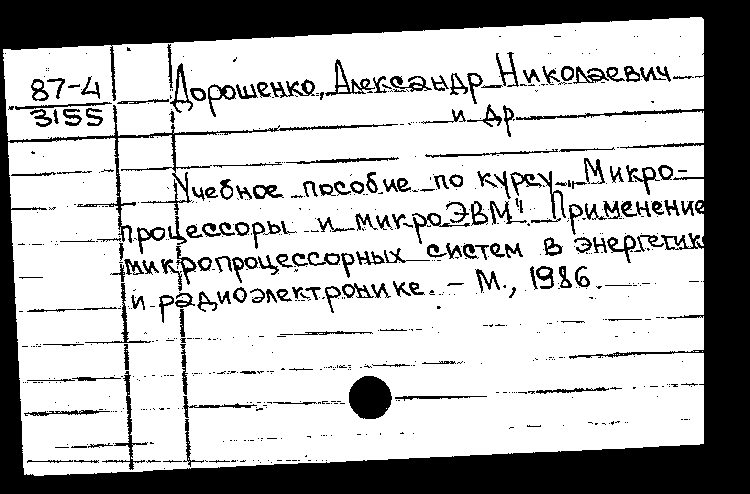 87-4
3155
Дорошенко, Александр Николаевич
и др
Учебное пособие по курсу „Микро-
процессоры и микроЭВМ". Применение
микропроцессорных систем в энергетике
и радиоэлектронике. – М., 1986.